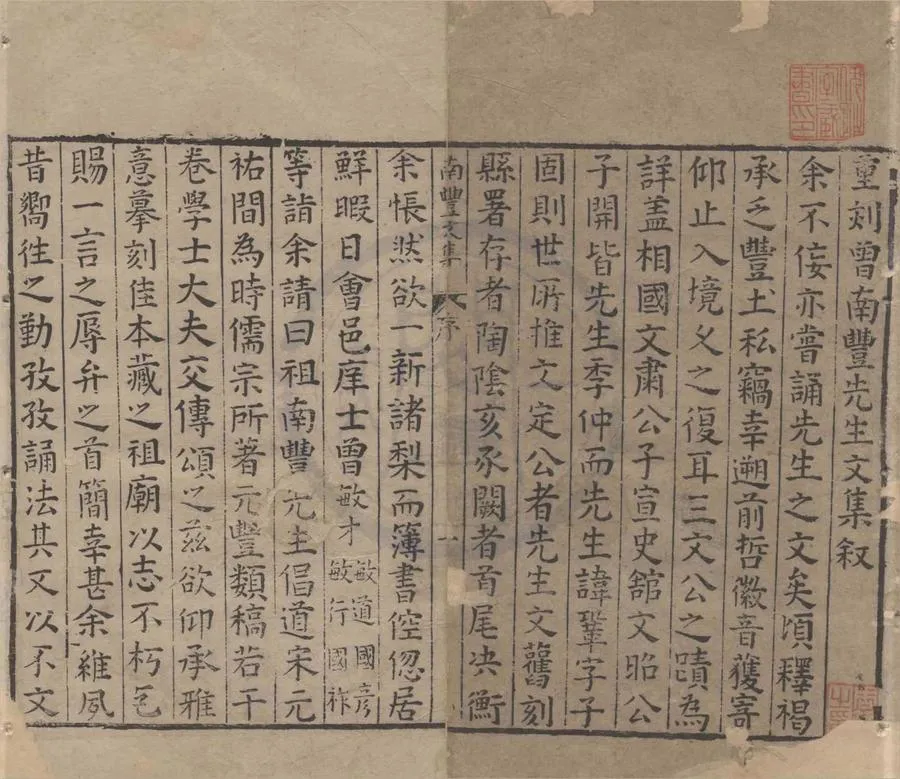 重刻曾南豐先生文集叙
余不佞亦嘗誦先生之文矣頃釋褐
承乏豐土私竊幸遡前哲徽音獲寄
仰止入境又之復耳三文公之蹟為
詳蓋相國文肅公子宣史舘文昭公
子開皆先生季仲而先生諱鞏字子
固則世所推文定公者先生文舊刻
縣署存者陶陰亥豕闕者首尾决衡
南豐文集 序 一
余悵然欲一新諸梨而簿書倥偬居
鮮暇日會邑庠士曾敏才敏道國彦敏行國祚
等詣余請曰祖南豐先生倡道宋元
祐間為時儒宗所著元豐類稿若干
卷學士大夫交傳頌之茲欲仰承雅
意摹刻佳本藏之祖廟以志不朽乞
賜一言之辱弁之首簡幸甚余維夙
昔嚮往之勤孜孜誦法其又以不文